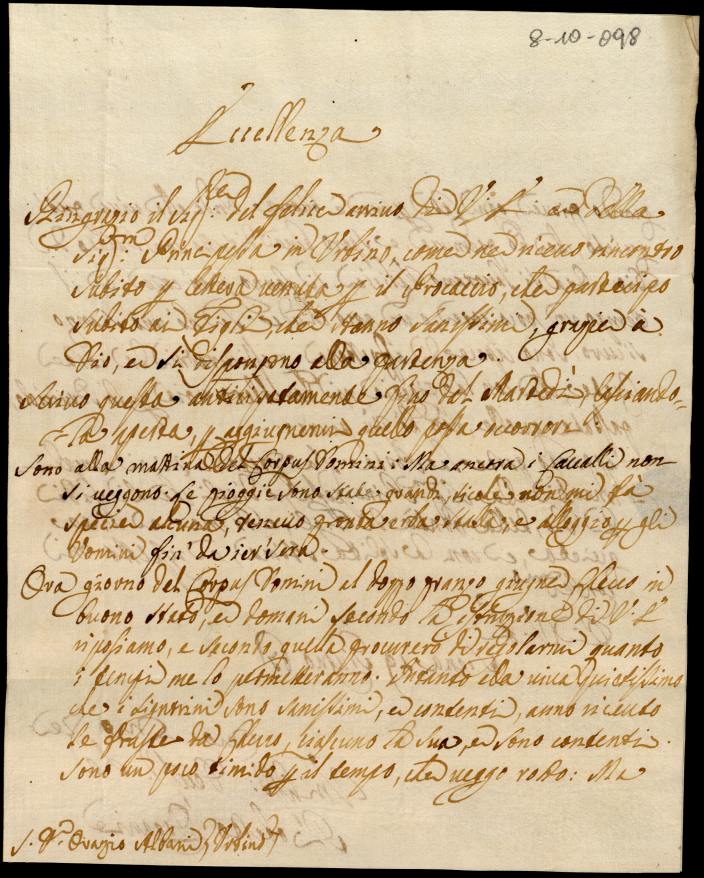 8-10-098
Eccellenza
Ringrazio il Sig.re del felice arrivo di V. E. e della
Sig.ra Principessa in Urbino, come ne ricevo rincontro
subito p lettera venuta p il Procaccio, che partecipo
subito ai Figli, che stanno sanissimi, grazie a
Dio, e si dispongono alla partenza.
scrivo questa anticipatamente fino del Martedì, lasciando-
la aperta, p aggiugnervi quello possa occorrere:
Sono alla mattina del Corpus Domini: Ma ancora i Cavalli non
si veggono. Le pioggie sono state grandi, sicche non mi fà
specie alcuna, tenevo pronta erba, stalla, e alloggio p gli
Uomini fin da ier sera.
Ora giorno del Corpus Domini al doppo pranzo giugne Checco in
buono stato, e domani secondo la istruzione di V. E.
riposiamo, e secondo quella procurerò di regolarmi quanto
i tempi me lo permetteranno. Intanto ella viva quietissimo
che i Signorini sono sanissimi, e contenti, anno ricevuto
le fruste da Checco, ciascuno la sua, e sono contenti.
Sono un poco timido p il tempo, che veggo rotto: Ma
S. D. Orazio Albani (Urbino)